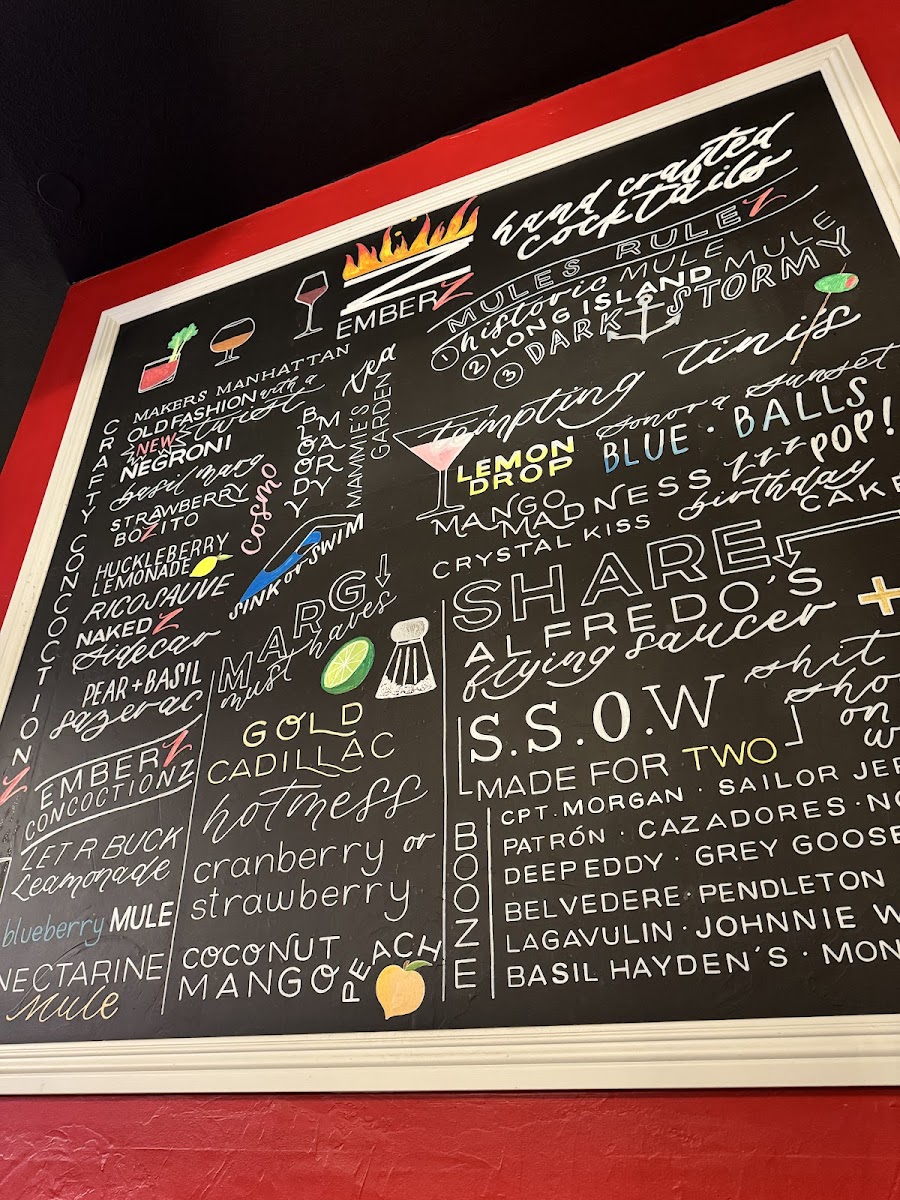 EMBERZ
hand crafted
cocktails
MULES RULEZ
1 historic MULE
2 LONG ISLAND MULE
3 DARK STORMY
CRAFTY CONCOCTIONZ
MAKERS MANHATTAN
OLD FASHION with a
twist
NEW
NEGRONI
basil marg
STRAWBERRY
BOZITO
HUCKLEBERRY
LEMONADE
RICO SAUVE
NAKEDZ
Sidecar
PEAR + BASIL
sazerac
cosmo
BLOODY
MARY
MAMMIES
GARDEN
tea
SINK or SWIM
tempting tinis
LEMON
DROP
sonora sunset
BLUE · BALLS
MANGO
MADNESS
zzz POP!
CRYSTAL KISS
birthday
CAKE
MARG
must haves
GOLD
CADILLAC
hotness
cranberry or
strawberry
COCONUT
MANGO
PEACH
SHARE
ALFREDO'S
flying saucer +
S.S.O.W
shit
sho
on
w
MADE FOR TWO
EMBERZ
CONCOCTIONZ
LET R BUCK
Leamonade
blueberry MULE
NECTARINE
Mule
BOOZE
CPT. MORGAN · SAILOR JER
PATRÓN · CAZADORES · NO
DEEP EDDY · GREY GOOSE
BELVEDERE · PENDLETON
LAGAVULIN · JOHNNIE W
BASIL HAYDEN'S · MON